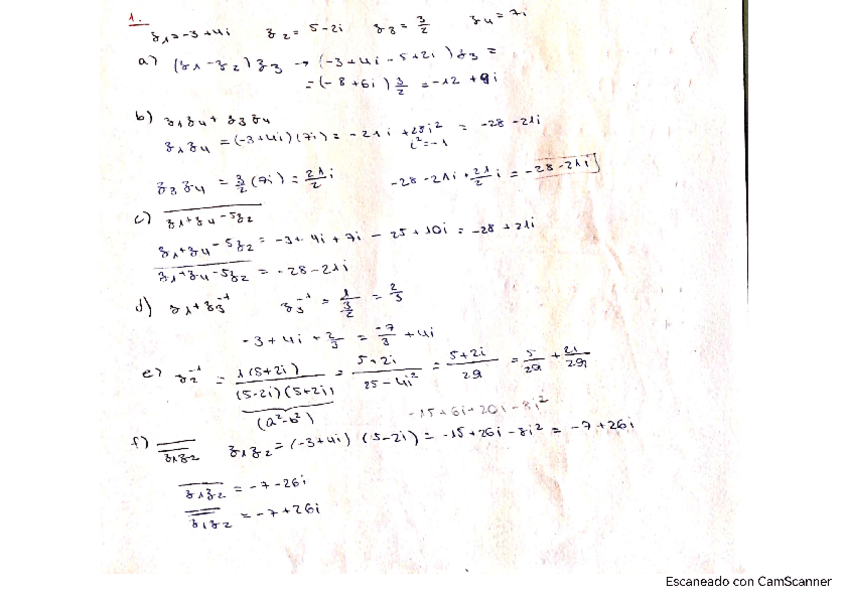 1.
z₁=-3+4i z₂ = 5-2i z₃ = 3/2 z₄ = 7i
a) (z₁-z₂)z₃ → (-3+4i-5+2i)z₃ =
= (-8+6i) 3/2 = -12 + 9i
b) z₁z₄ + z₃z₄
z₁z₄ = (-3+4i)(7i) = -21i + 28i² = -28-21i
i²=-1
z₃z₄ = 3/2 (7i) = 21/2 i -28-21i + 21/2 i = -28-21i
c) \overline{z₁+z₄-5z₂}
z₁+z₄-5z₂ = -3+4i+7i-25+10i = -28+21i
\overline{z₁+z₄-5z₂} = -28-21i
d) z₁+z₃⁻¹ z₃⁻¹ = 1/(3/2) = 2/3
-3+4i+2/3 = -7/3 + 4i
e) z₂⁻¹ = 1(5+2i)/((5-2i)(5+2i)) = (5+2i)/(25-4i²) = (5+2i)/29 = 5/29 + 2i/29
(a²-b²)
-15+6i+20i-8i²
f) \overline{\overline{z₁z₂}} z₁z₂ = (-3+4i)(5-2i) = -15+26i-8i² = -7+26i
\overline{z₁z₂} = -7-26i
\overline{\overline{z₁z₂}} = -7+26i
Escaneado con CamScanner